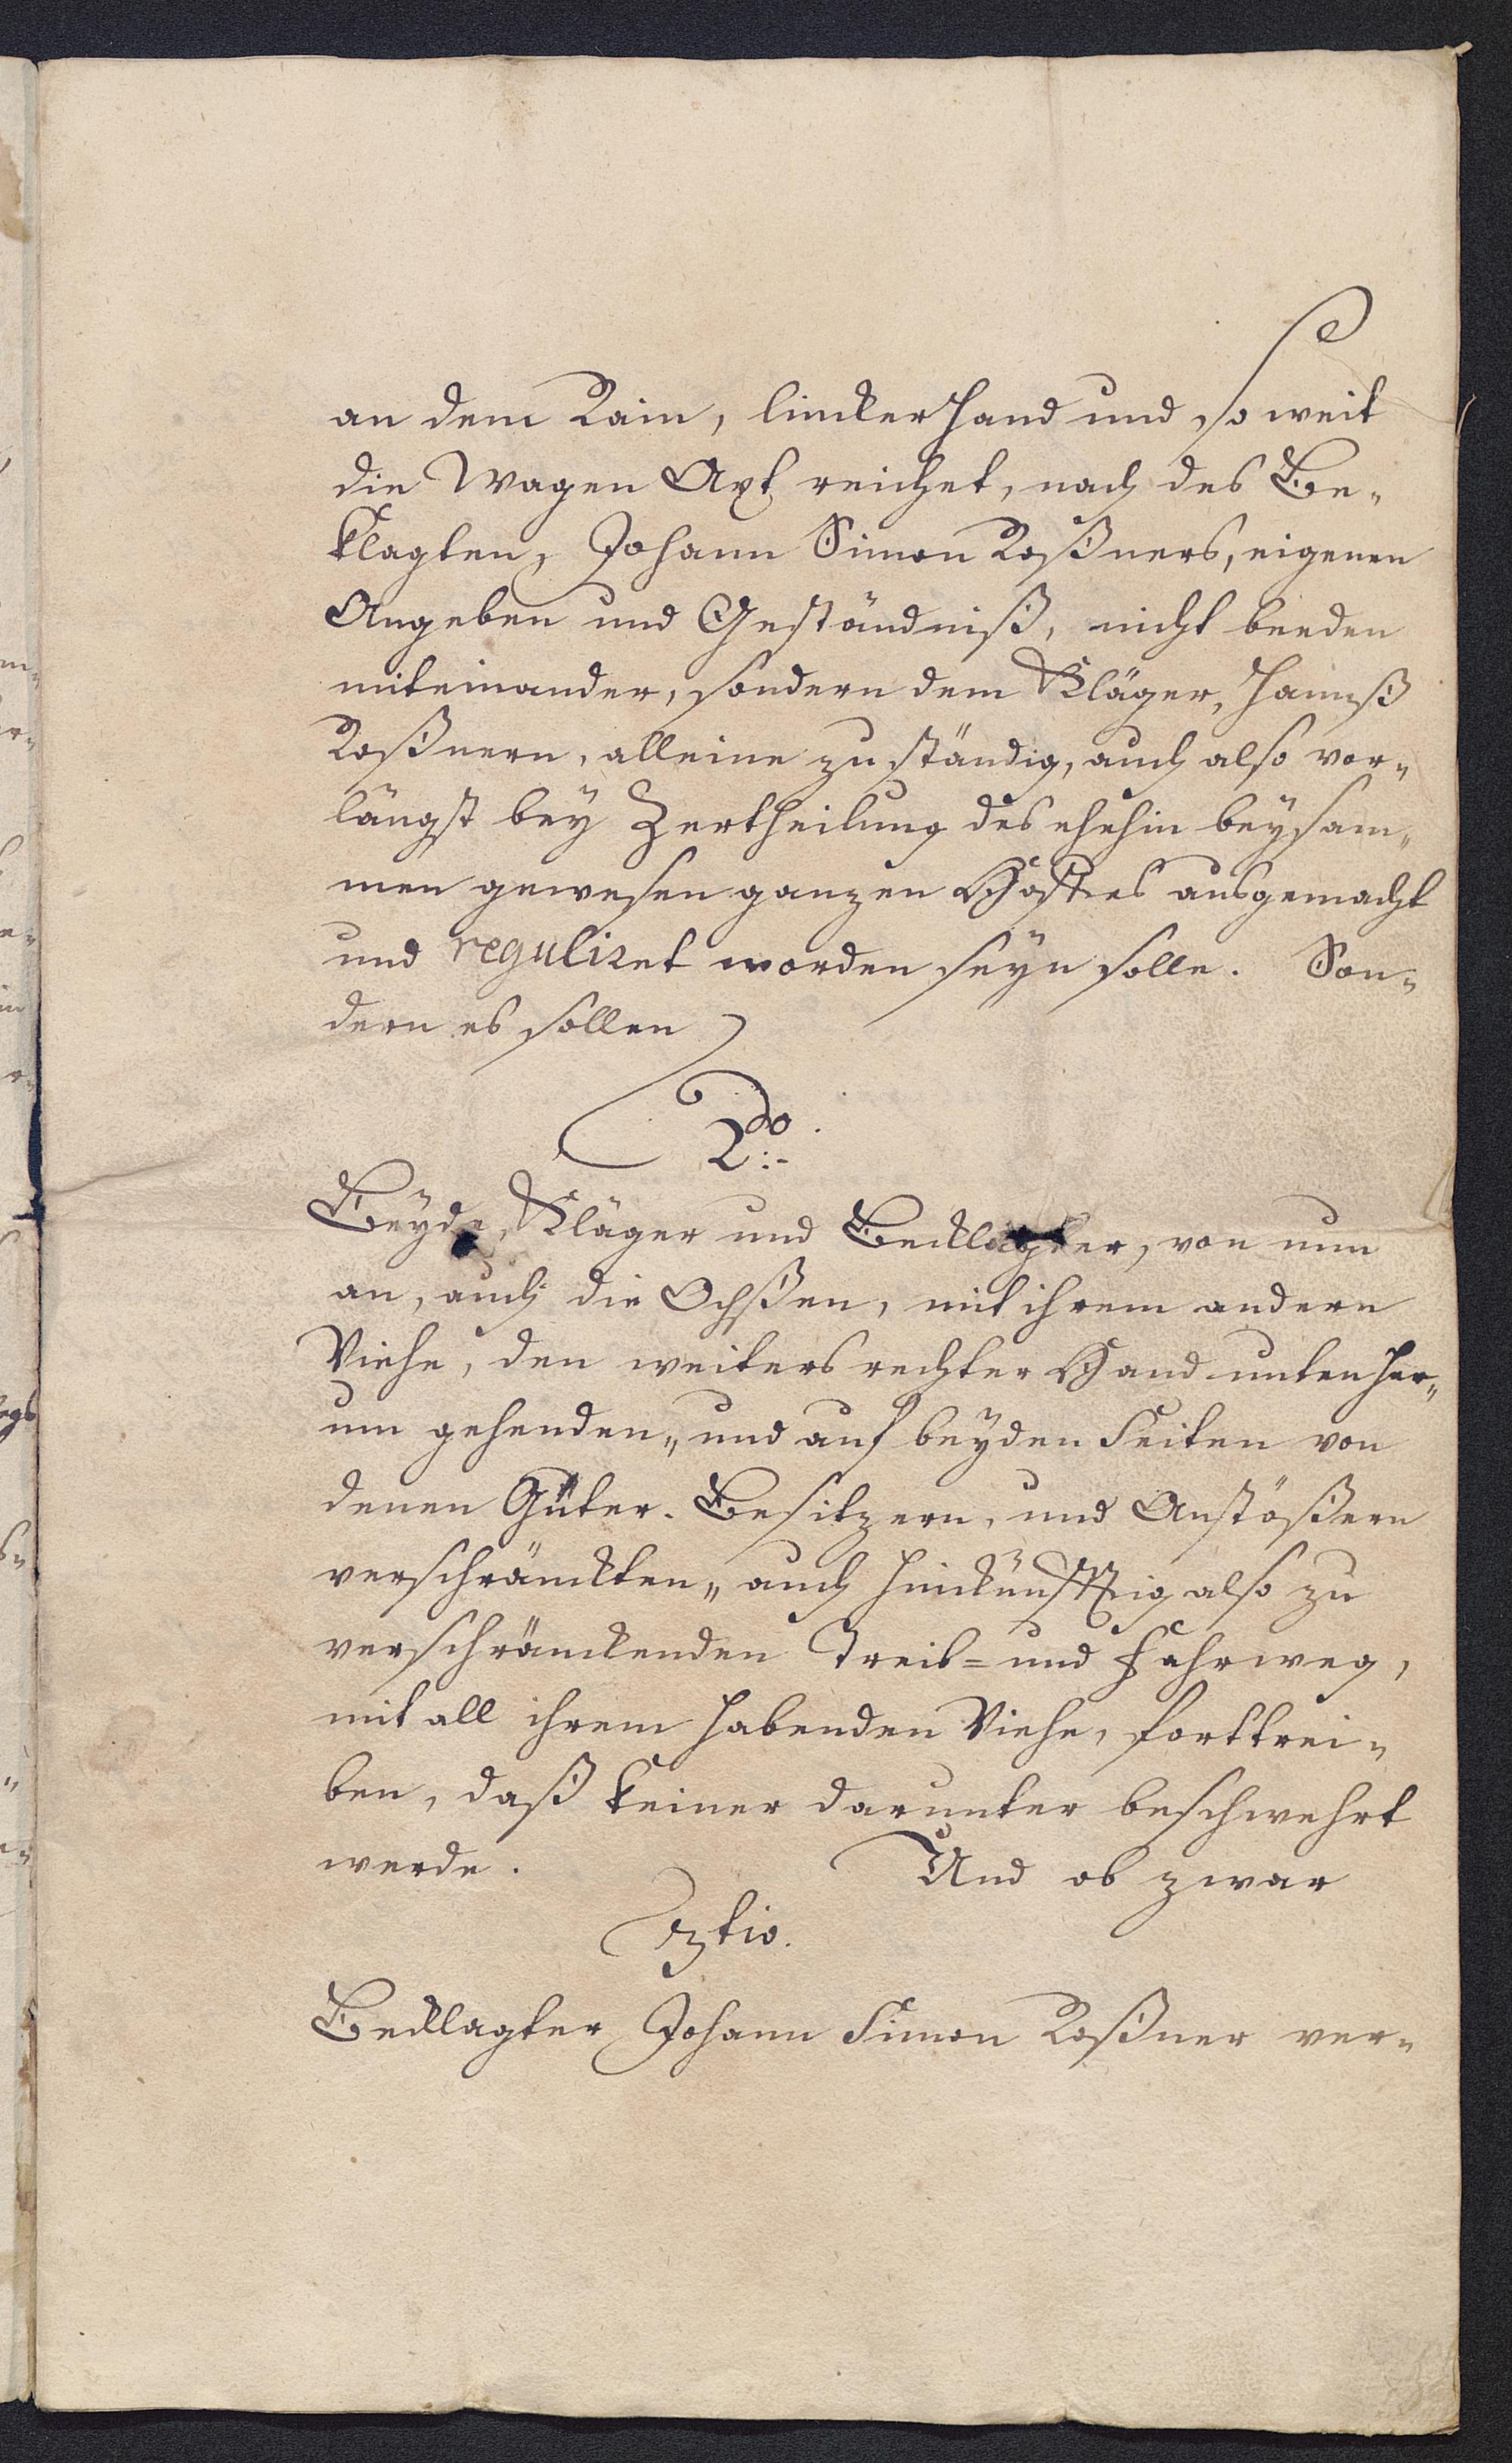 an dem Rain, lincker Hand und so weit
die Wagen Axt reichet, nach des Be-
klagten, Johann Simon Roßners, eigenen
Angeben und Geständniß, nicht beeden
miteinander, sondern dem Kläger, Hannß
Roßnern, alleine zuständig, auch also vor-
längst bey Zertheilung des ehehin beysam-
men gewesen ganzen Hofes ausgemacht
und reguliret worden seyn solle. Son-
dern es sollen
2do.
Beyde, Kläger und Becklagter, von nun
an, auch die Ochßen, mit ihrem andern
Viehe, den weiters rechter Hand unten her-
um gehenden, und auf beyden Seiten von
denen Güter-Besitzern, und Anstößern
verschränckten, auch hinkünfftig also zu
verschränckenden Treib= und Fahrweg,
mit all ihrem habenden Viehe, forttrei-
ben, daß keiner darunter beschwehrt
werde. Und ob zwar
3tio.
Becklagter Johann Simon Roßner ver-